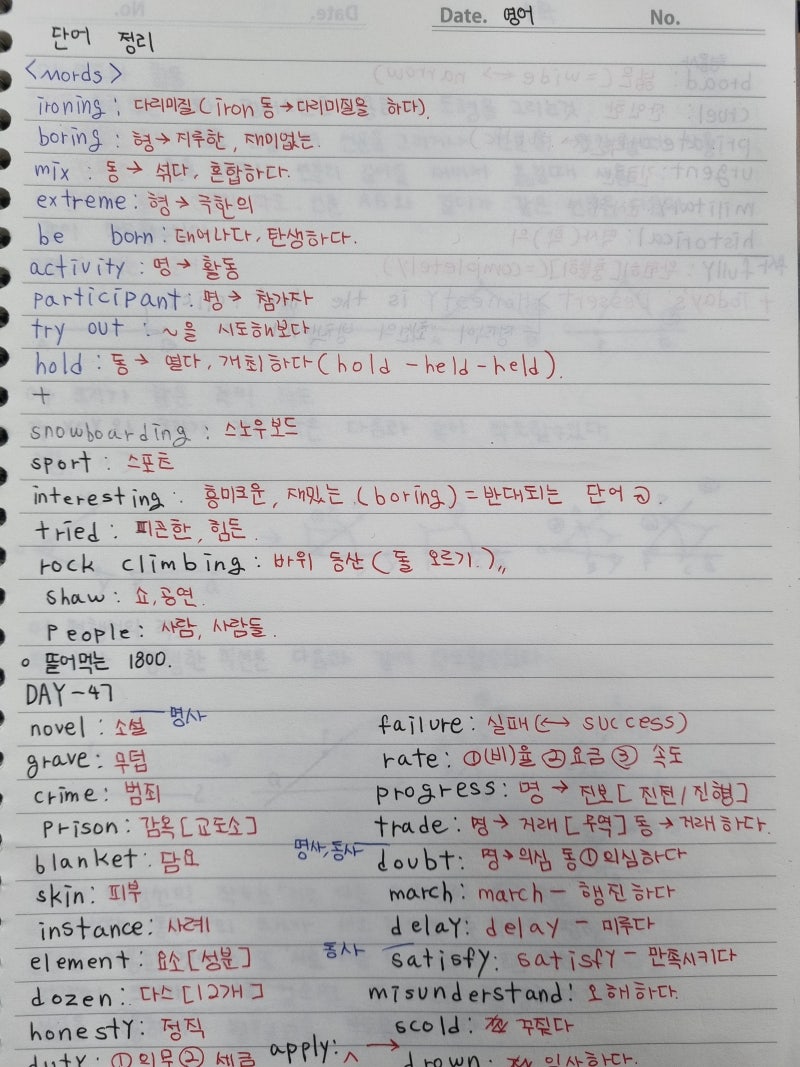 Date. 영어 No.
단어 정리
<Words>
ironing : 다리미질 (iron 동→다리미질을 하다).
boring : 형→지루한, 재미없는.
mix : 동→ 섞다, 혼합하다.
extreme : 형→ 극한의
be born : 태어나다, 탄생하다.
activity : 명→ 활동
participant : 명→ 참가자
try out : ~을 시도해보다
hold : 동→ 열다, 개최하다 (hold - held - held).
+
snowboarding : 스노우보드
sport : 스포트
interesting : 흥미로운, 재밌는 (boring) = 반대되는 단어
tried : 피곤한, 힘든.
rock climbing : 바위 등산 (돌 오르기.)
shaw : 쇼, 공연.
people : 사람, 사람들.
뜯어먹는 1800.
DAY-47
명사
novel : 소설
grave : 무덤
crime : 범죄
prison : 감옥 [교도소]
blanket : 담요
skin : 피부
instance : 사례
element : 요소 [성분]
dozen : 다스 [12개]
honesty : 정직
duty : ① 의무 ② 세금
failure : 실패 (↔ success)
rate : ①(비)율 ②요금 ③ 속도
progress : 명 → 진보 [진전/진행]
trade : 명→ 거래 [무역] 동→거래하다.
명사, 동사
doubt : 명→의심 동①의심하다
march : march - 행진하다
delay : delay - 미루다
동사
satisfy : satisfy - 만족시키다
misunderstand : 오해하다.
scold : 꾸짖다
apply : →
drown : 익사하다.